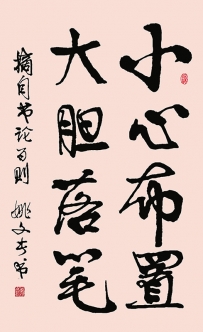 小心布置
大胆落笔
摘自书论句则
姚文奎书